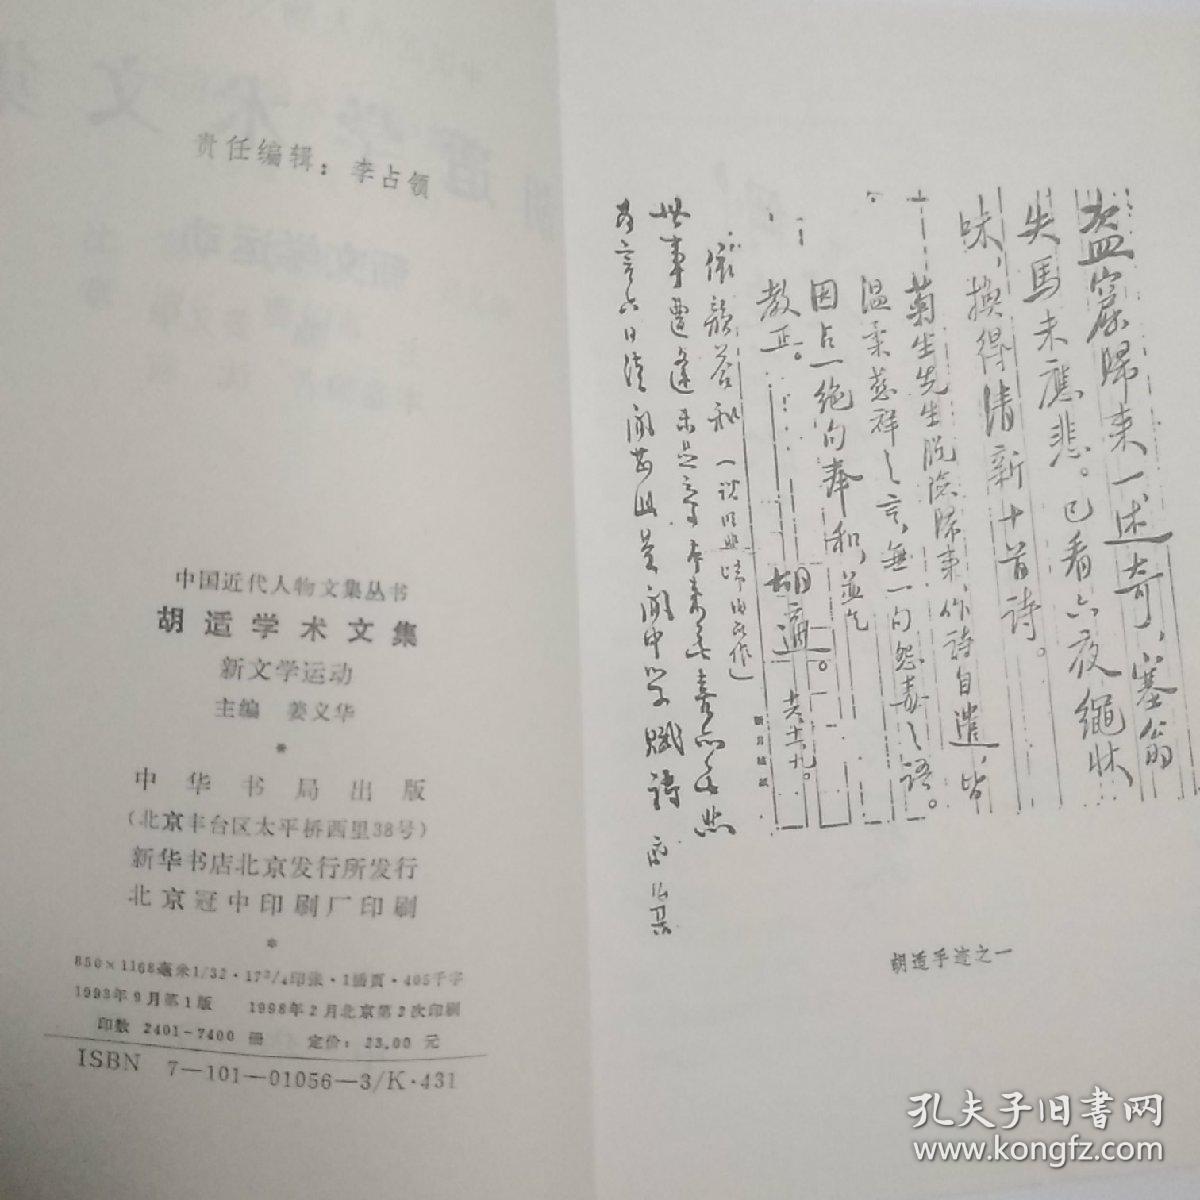 责任编辑：李占领
中国近代人物文集丛书
胡适学术文集
新文学运动
主编 姜义华
*
中华书局出版
（北京丰台区太平桥西里38号）
新华书店北京发行所发行
北京冠中印刷厂印刷
*
850×1168毫米1/32·17³/₄印张·1插页·405千字
1993年9月第1版 1998年2月北京第2次印刷
印数 2401-7400 册 定价：23.00元
ISBN 7—101—01056—3/K·431
盗窟歸来一述奇，塞翁
失馬未應悲。已看六夜繩牀
味，換得清新十首诗。
菊生先生脱险歸来，作诗自遣，皆
温柔慈祥之言，無一句怨毒之语。
因占一絶句奉和，並乞
教正。
胡適。
依韵答和一
世事遭逢未足奇
赋诗
胡适手迹之一
孔夫子旧书网
www.kongfz.com